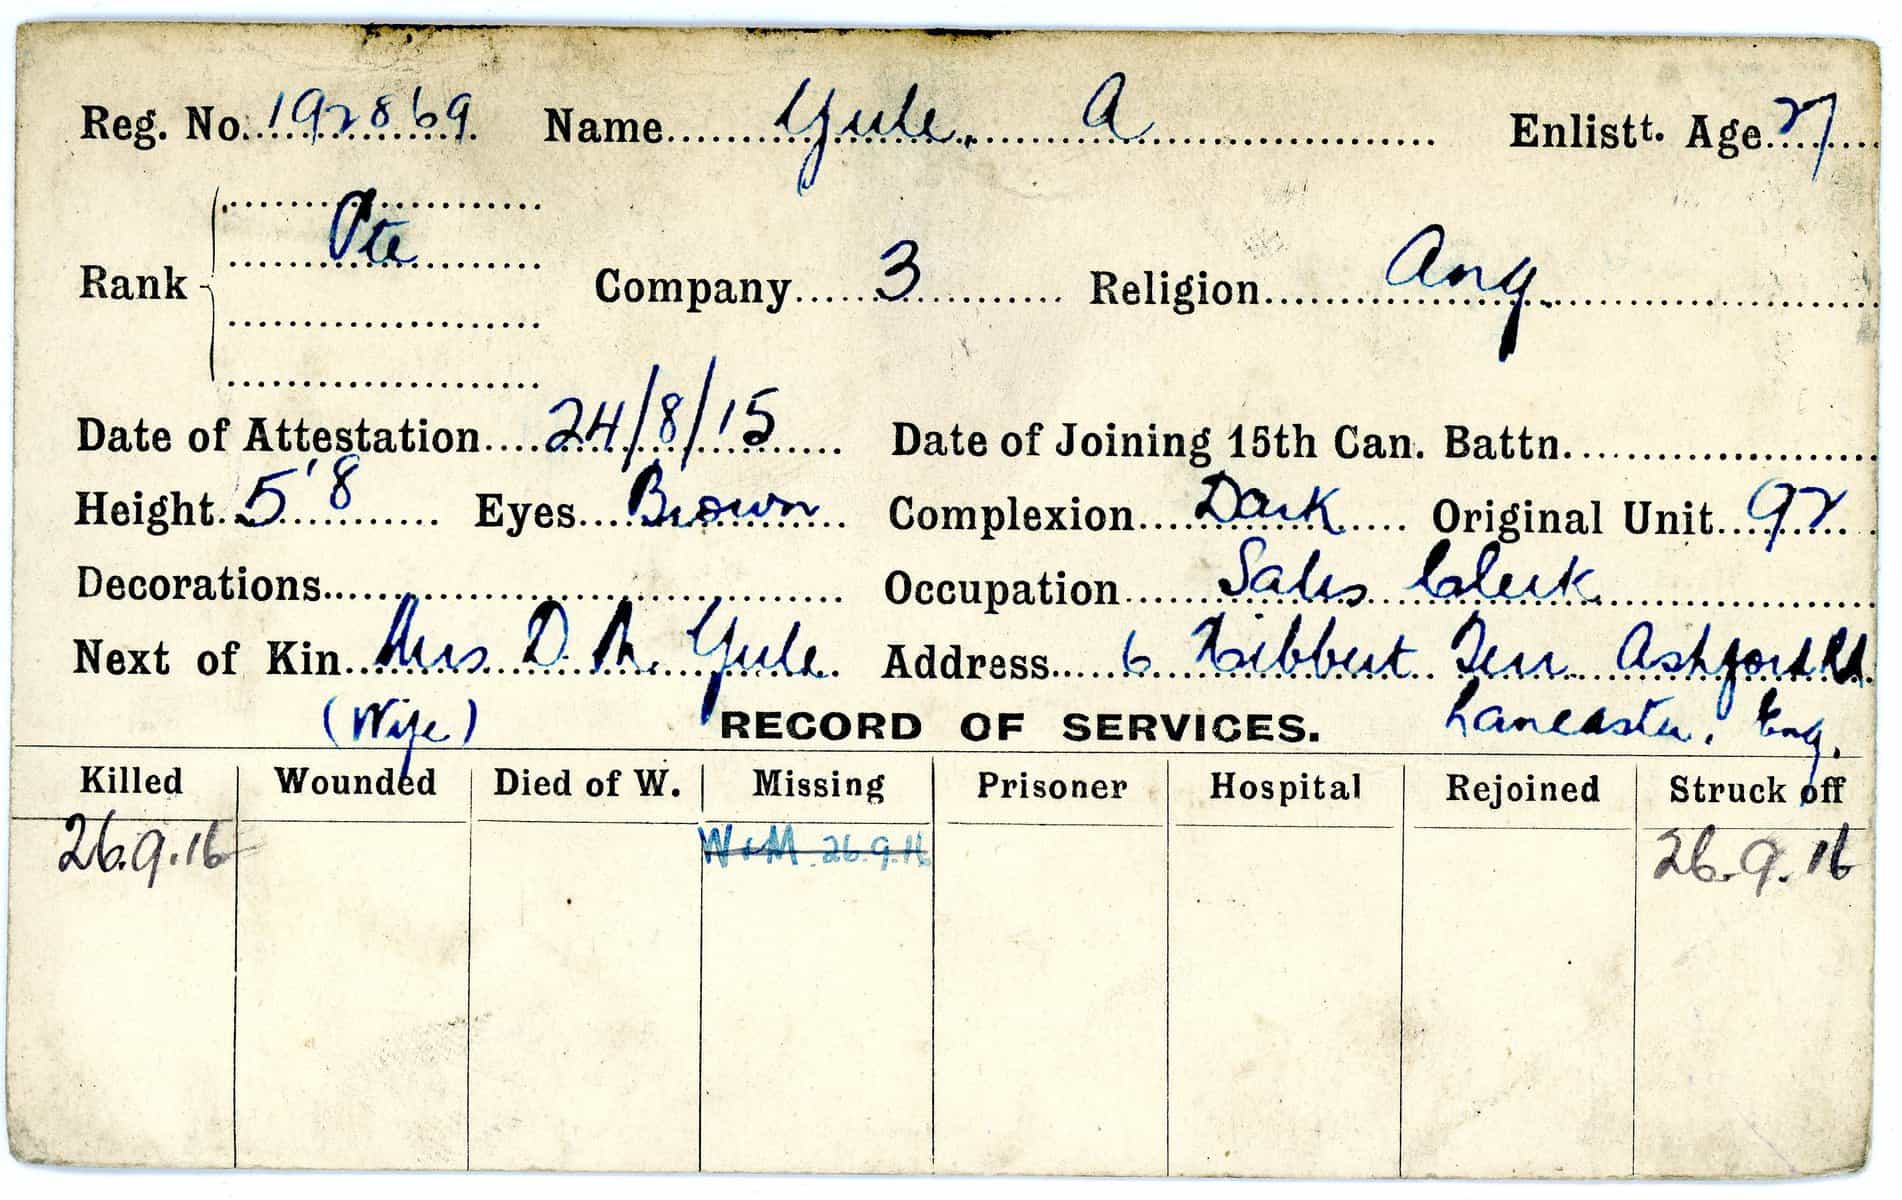 Reg. No. 192869 Name Yule, A Enlistt. Age 27
Rank Pte Company 3 Religion Ang.
Date of Attestation 24/8/15 Date of Joining 15th Can. Battn.
Height 5'8 Eyes Brown Complexion Dark Original Unit 92
Decorations Occupation Sales Clerk
Next of Kin Mrs D. M. Yule Address 6 Hibbert Terr Ashford Rd
(Wife) RECORD OF SERVICES. Lancaster, Eng.
Killed Wounded Died of W. Missing Prisoner Hospital Rejoined Struck off
26.9.16 W & M 26.9.16 26.9.16